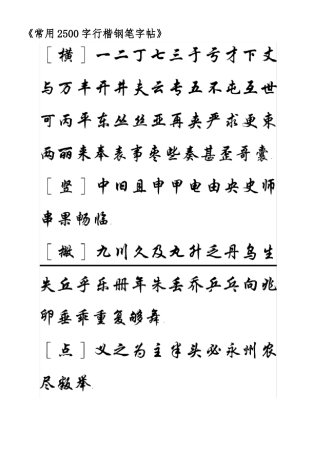 《常用2500字行楷钢笔字帖》
［横］一二丁七三于亏才下丈
与万丰开井夫云专五不屯互世
可丙平东丝丝亚再夹严求更束
两丽来奉表事枣些奏甚歪哥囊
［竖］中旧且申甲电由央史师
串果畅临
［撇］九川久及丸升乏丹乌生
失丘乎乐册年朱丢乔乒乓向兆
卵垂乖重复够舞
［点］义之为主半头必永州农
尽叛举